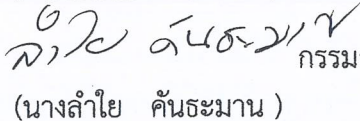 ลำใย คันธะมาน กรรม
(นางลำใย คันธะมาน )